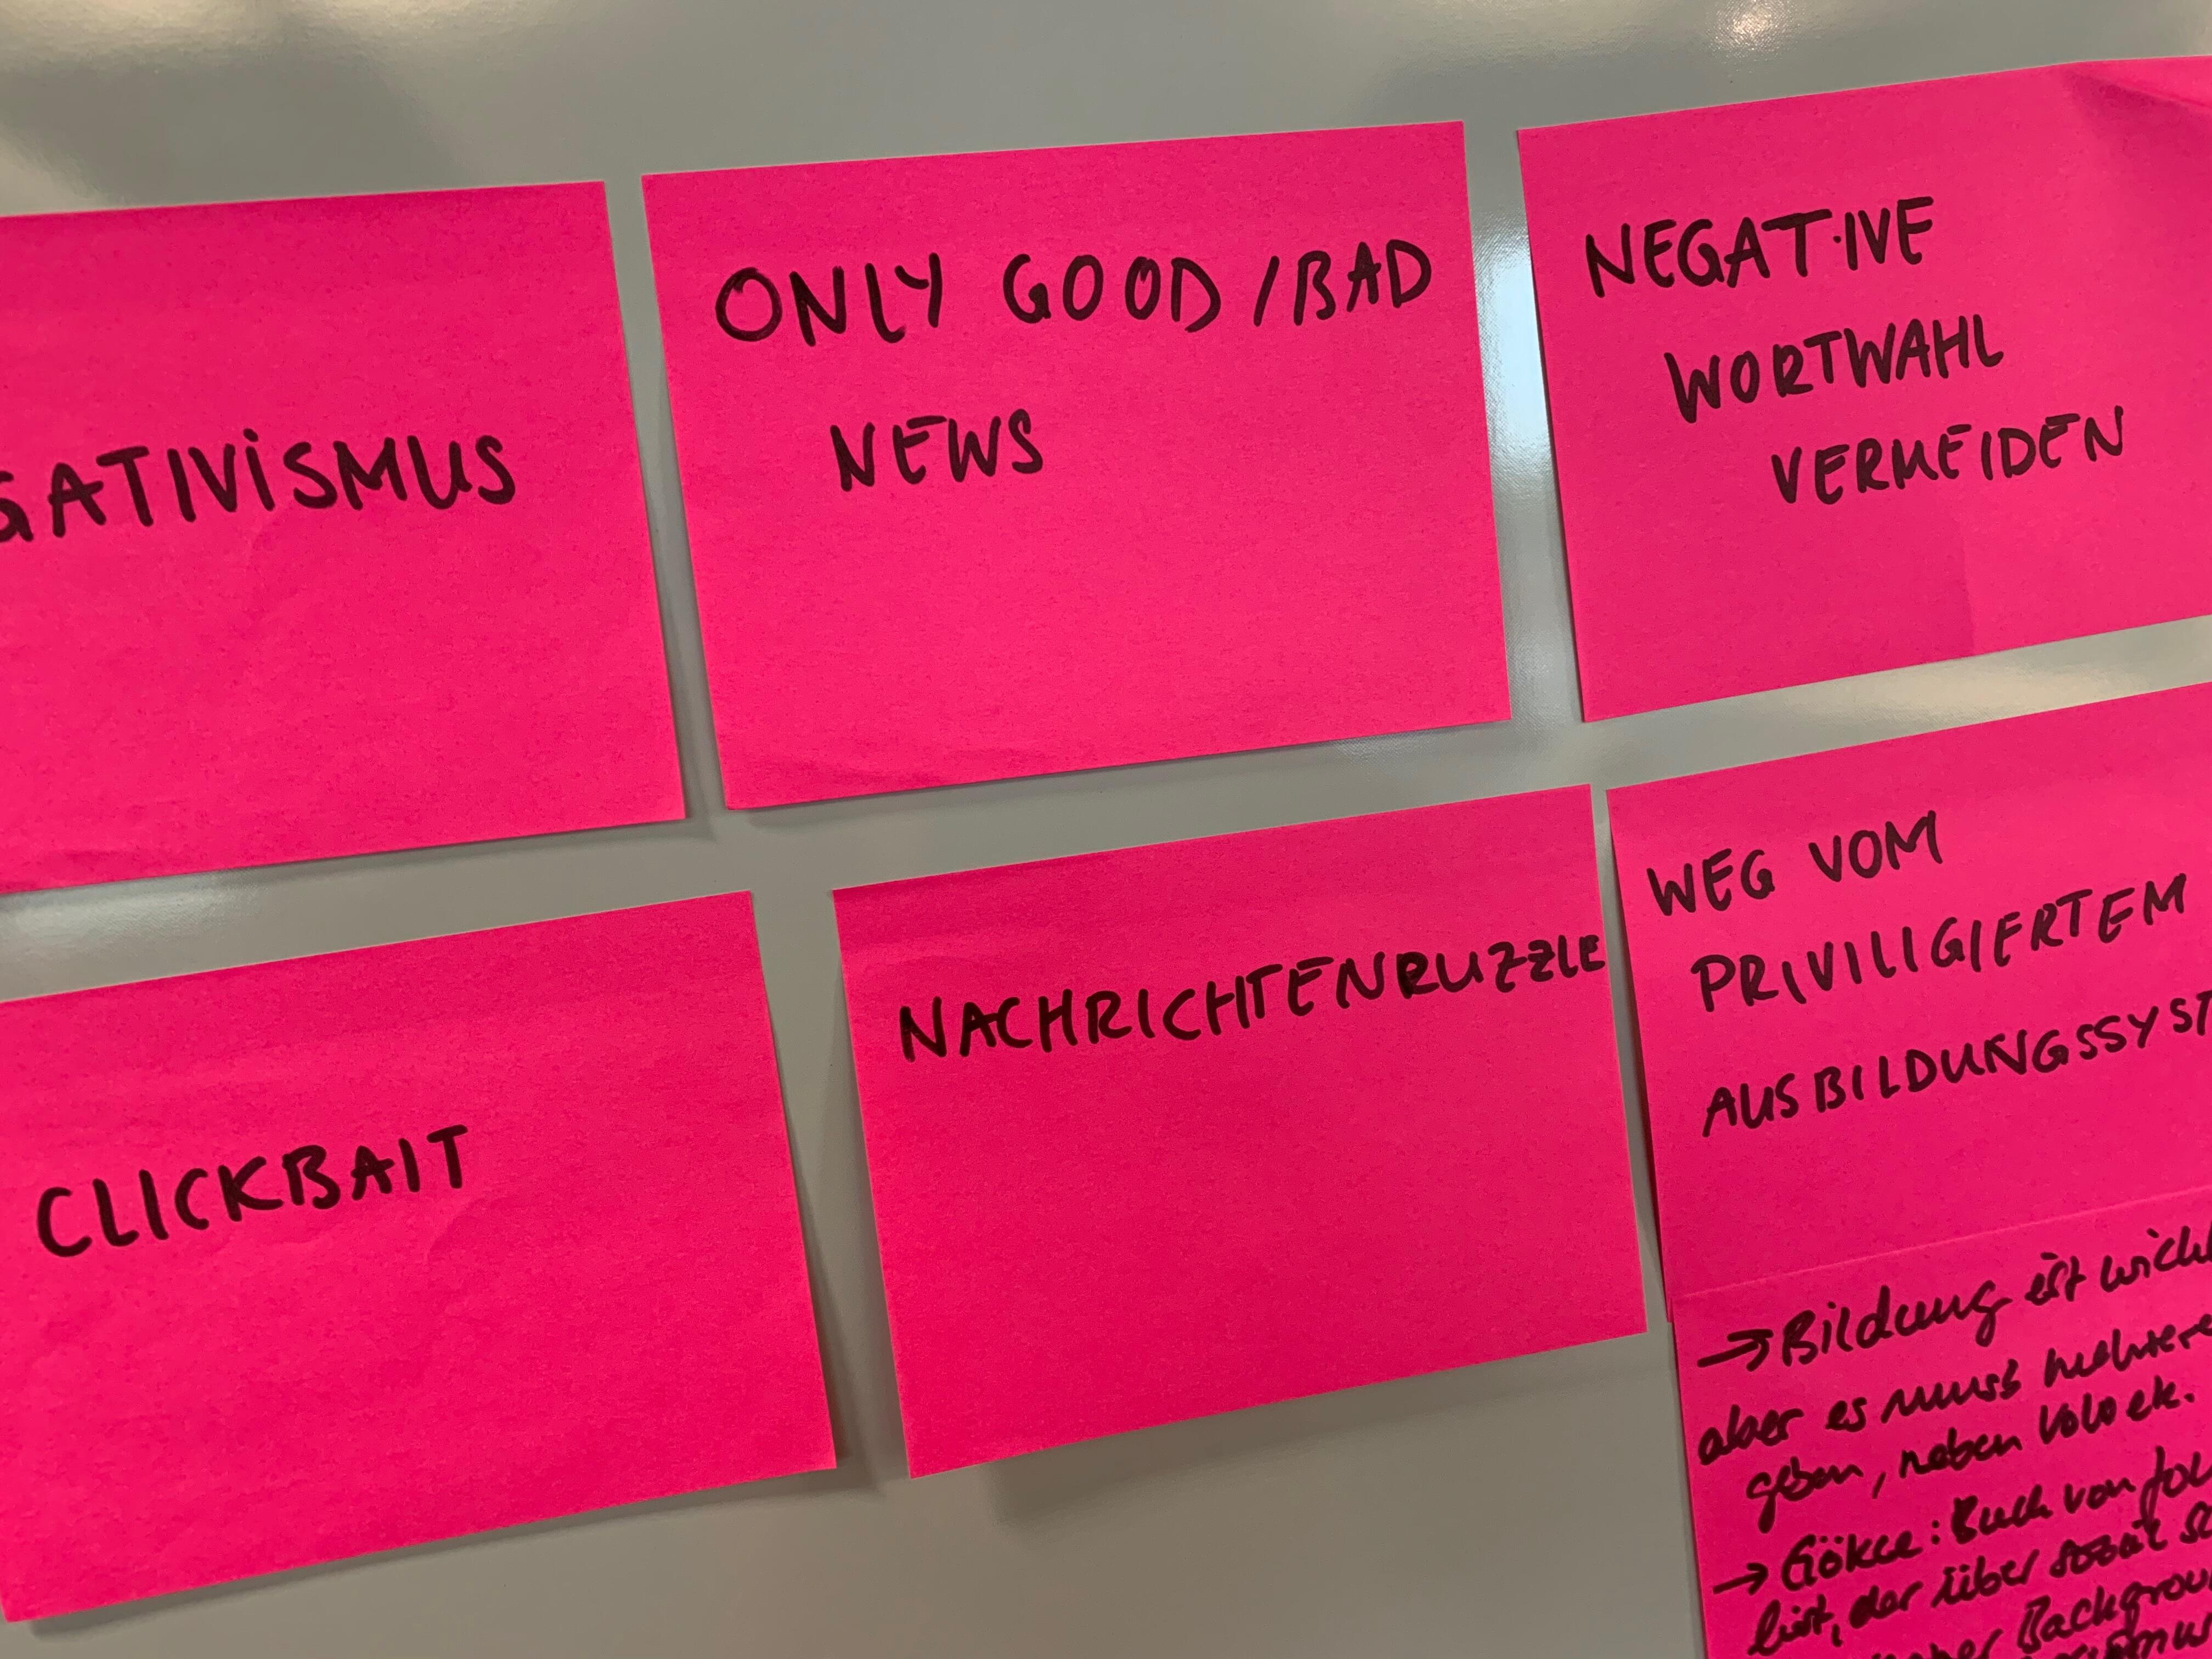 GATIVISMUS
ONLY GOOD/BAD
NEWS
NEGATIVE
WORTWAHL
VERMEIDEN
CLICKBAIT
NACHRICHTENPUZZLE
WEG VOM
PRIVILIGIERTEM
AUSBILDUNGSSYST
→ Bildung ist wicht
aber es muss mehrere
geben, neben Volo etc.
→ Gökce: Buch von Jou
list, der über sozial
Backgrou